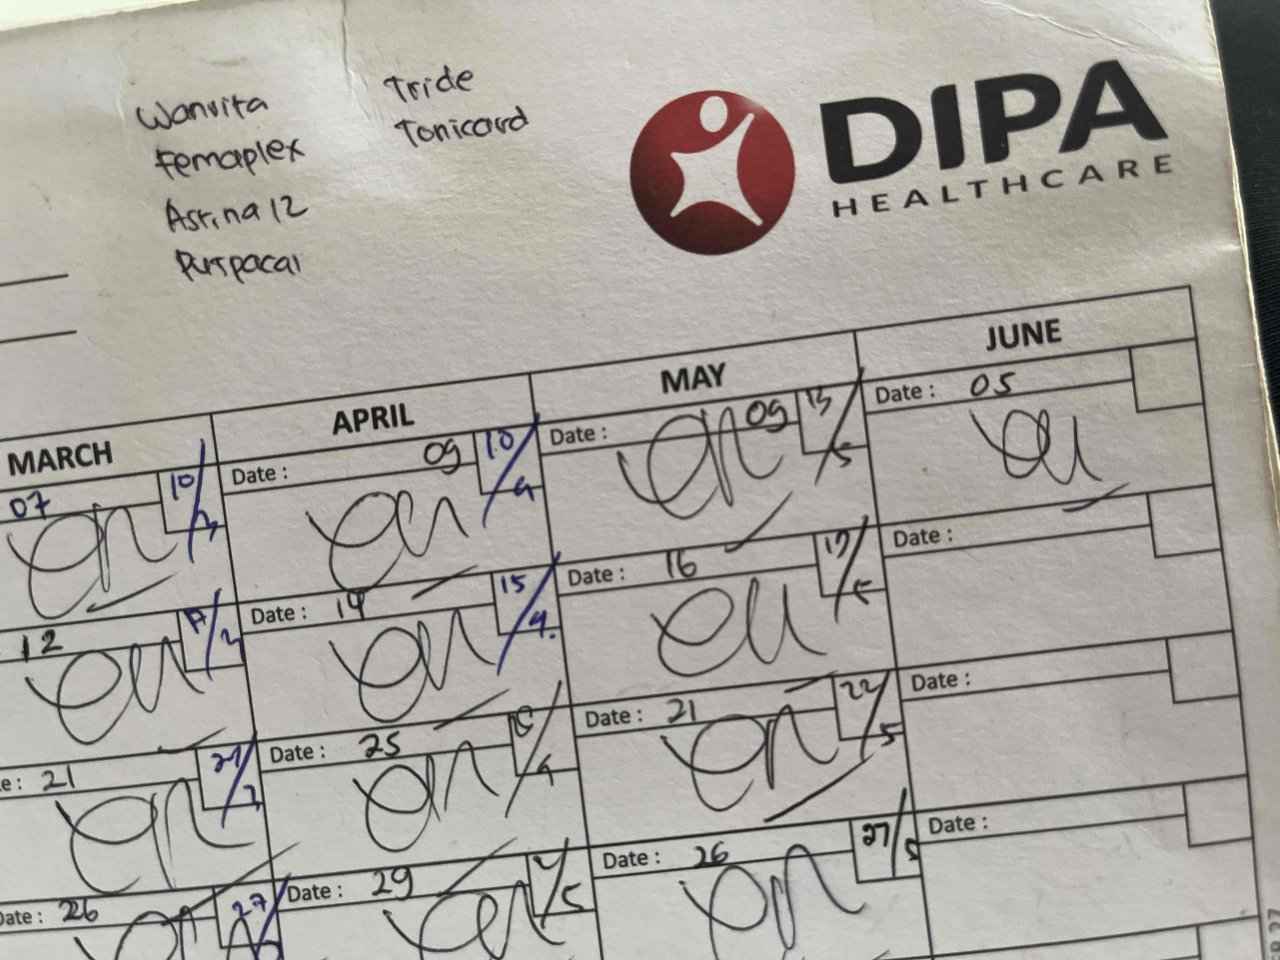 Wanvita
Femaplex
Astina 12
Puspacal
Tride
Tonicard
DIPA
HEALTHCARE
MARCH
APRIL
MAY
JUNE
07
10/3
Date : 09
10/4
Date : 09
13/5
Date : 05
12
Date : 14
15/4.
Date : 16
17/5
Date :
e: 21
Date : 25
Date : 21
22/5
Date :
ate : 26
27/
Date : 29
Date : 26
27/5
Date :